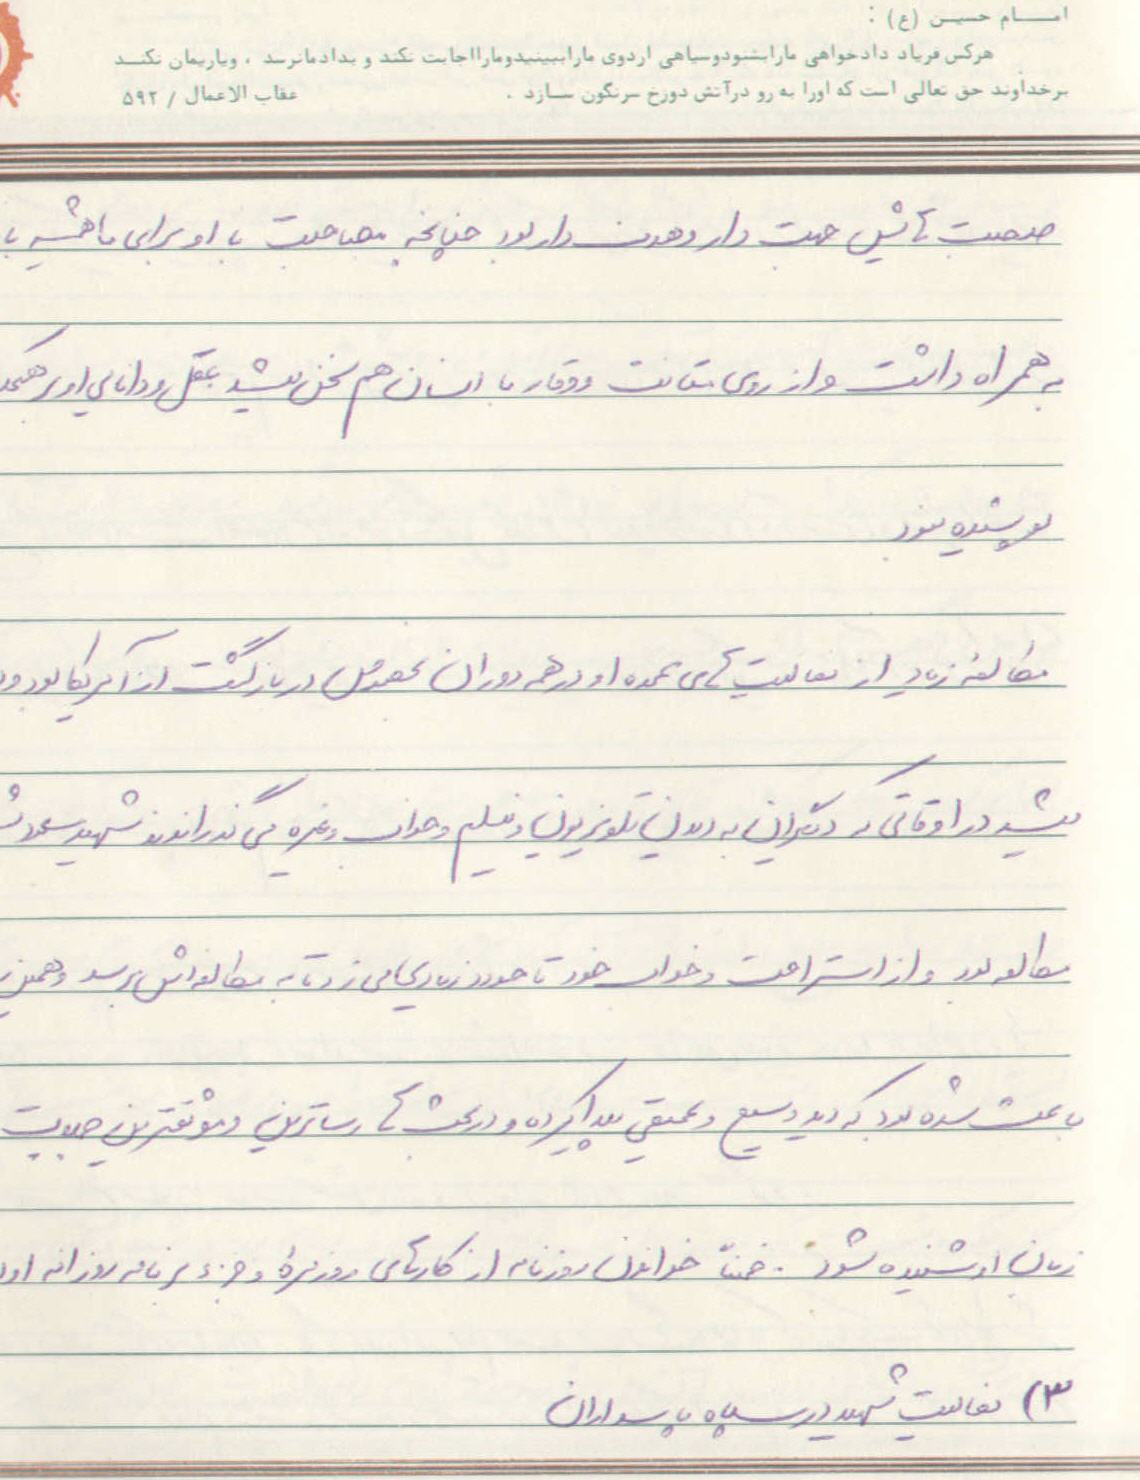 امام حسین (ع) :
هرکس فریاد دادخواهی مارابشنودوسیاهی اردوی مارابیینیدومارااجابت نکند و بدادمانرسد ، ویاریمان نکند
برخداوند حق تعالی است که اورا به رو درآتش دوزخ سرنگون سازد .
عقاب الاعمال / ۵۹۲
صحبت هایش جهت دار وهدف دار بود چنانچه مصاحبت با او برای ما همیشه
به همراه داشت و از روی متانت ووقار با انسان هم سخن میشد عقل و دانایی او بر هیچکد
پوشیده نبود
مطالعه زیاد از فعالیت های عمده او در همه دوران تحصیل در بازگشت از آمریکا بود و
میشد در اوقاتی که دیگران به دیدن تلویزیون و فیلم و خواب وغیره می گذراندند شهید مسعود
مطالعه بود و از استراحت و خواب خود تا حدود زیادی می زد تا به مطالعه اش برسد و همین
باعث شده بود که دید وسیع و عمیقی پیدا کرده و در بحث ها رساترین و موثقترین صحبت
زبان او شنیده شود . ضمناً خواندن روزنامه از کارهای روزمره و جزء برنامه روزانه او
۳) فعالیت شهید در سپاه پاسداران